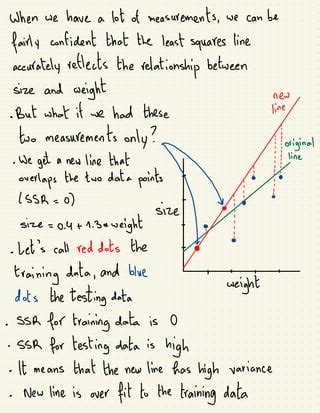 When we have a lot of measurements, we can be
fairly confident that the least squares line
accurately reflects the relationship between
size and weight
. But what if we had these
two measurements only?
. We get a new line that
overlaps the two data points
(SSR = 0)
size = 0.4 + 1.3 * weight
. Let's call red dots the
training data, and blue
dots the testing data
. SSR for training data is 0
. SSR for testing data is high
. It means that the new line has high variance
. New line is over fit to the training data
new
line
original
line
size
weight